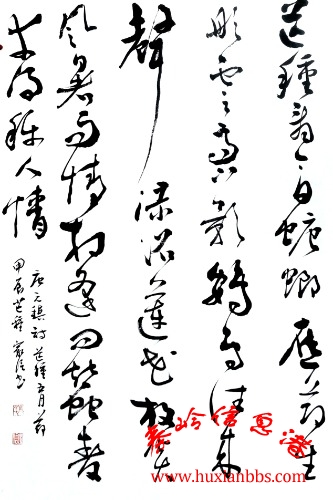 芒種看今日螳螂應節生
彤雲高下影鴳鳥往來
聲渌沼蓮花放炎
風暑雨情相逢問蠶麥
幸得稱人情
唐元稹詩芒種五月節
甲辰芒種
www.huxianbbs.com